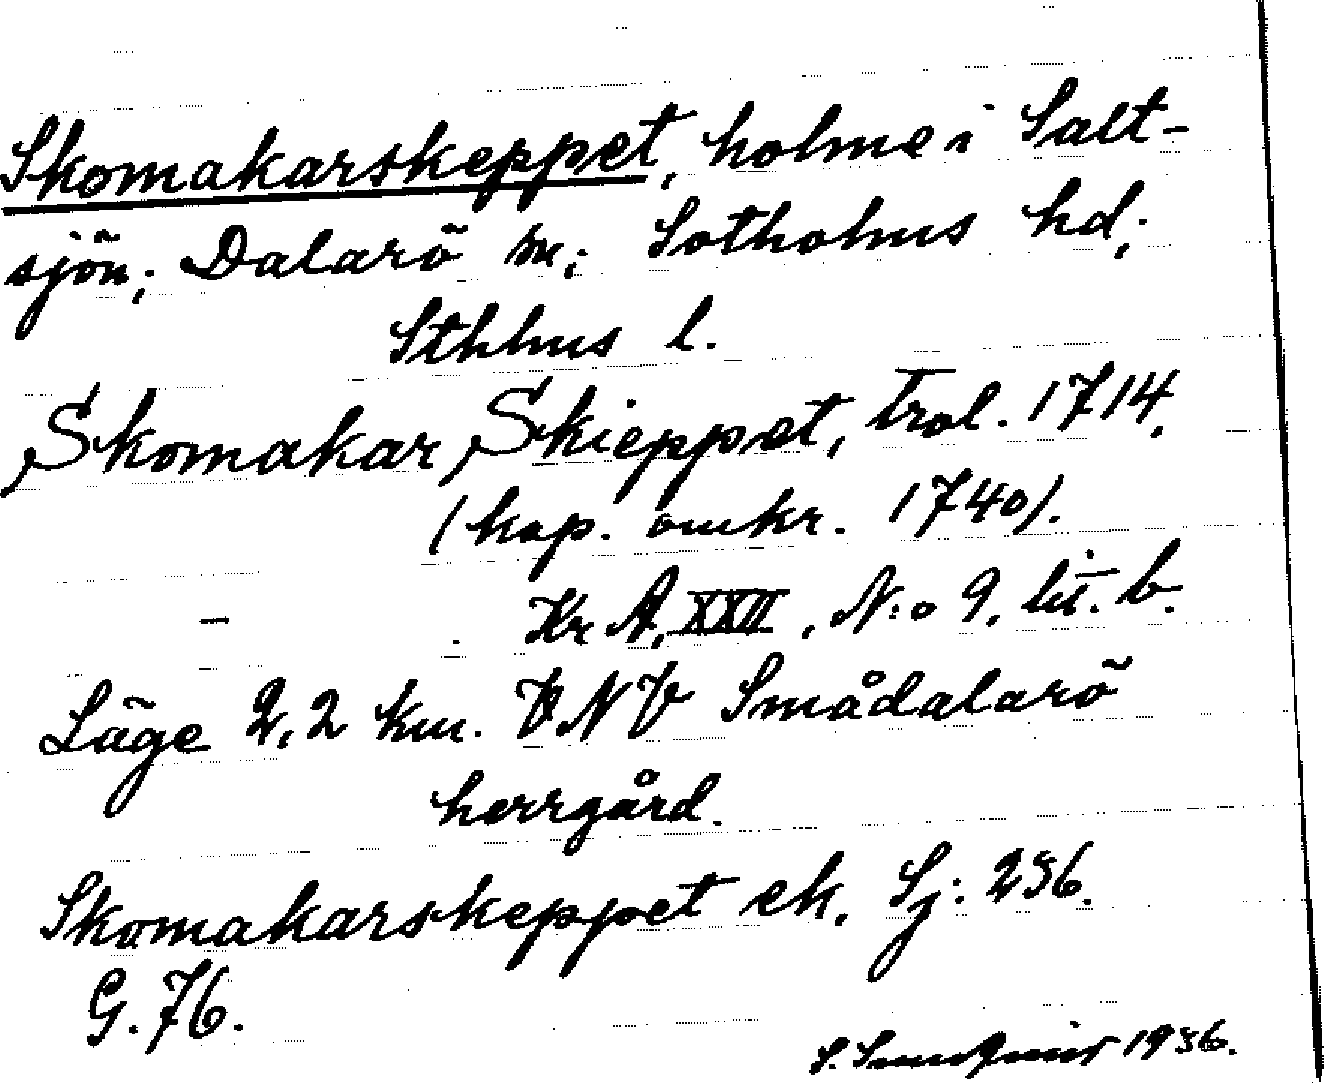 Skomakarskeppet, holme i Salt-
sjön; Dalarö sn; Sotholms hd;
Sthlms l.
Skomakar Skieppet, trol. 1714,
(kop. omkr. 1740).
Kr A, XXII, N:o 9, litt. b.
Läge 2,2 km. VNV Smådalarö
herrgård.
Skomakarskeppet ek. Sj: 236.
G. 76.
S. 1936.